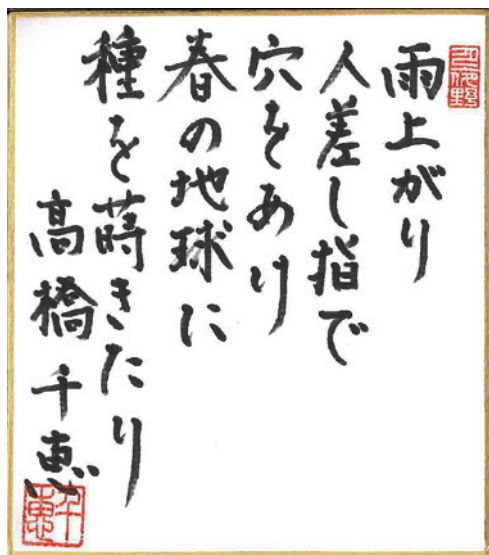 雨上がり
人差し指で
穴をあけ
春の地球に
種を蒔きたり
高橋千恵
千惠